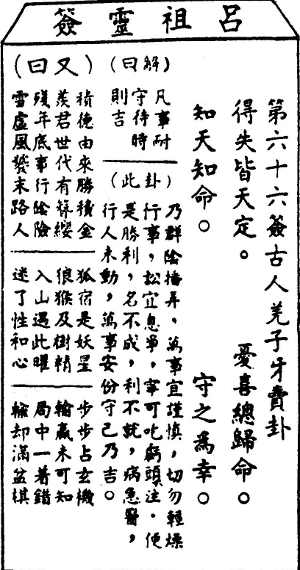 呂祖靈簽
第六十六簽古人羌子牙費卦
得失皆天定。 憂喜總歸命。
知天知命。 守之為幸。
(解曰)
凡事耐
守待時
則吉
(此卦)
乃群陰搗弄,萬事宜謹慎,切勿輕燥
行事,松宜息爭,寧可吃虧頭注。便
是勝利,名不成,利不就,病急醫,
行人未動,萬事安份守己乃吉。
(又曰)
積德由來勝積金
羨君世代有簪纓
殘年底事行陰險
雪虐風饕末路人
狐宿是妖星
狼猴及樹精
入山遇此曜
迷了性和心
步步占玄機
輸贏未可知
局中一着錯
輸却滿盆棋